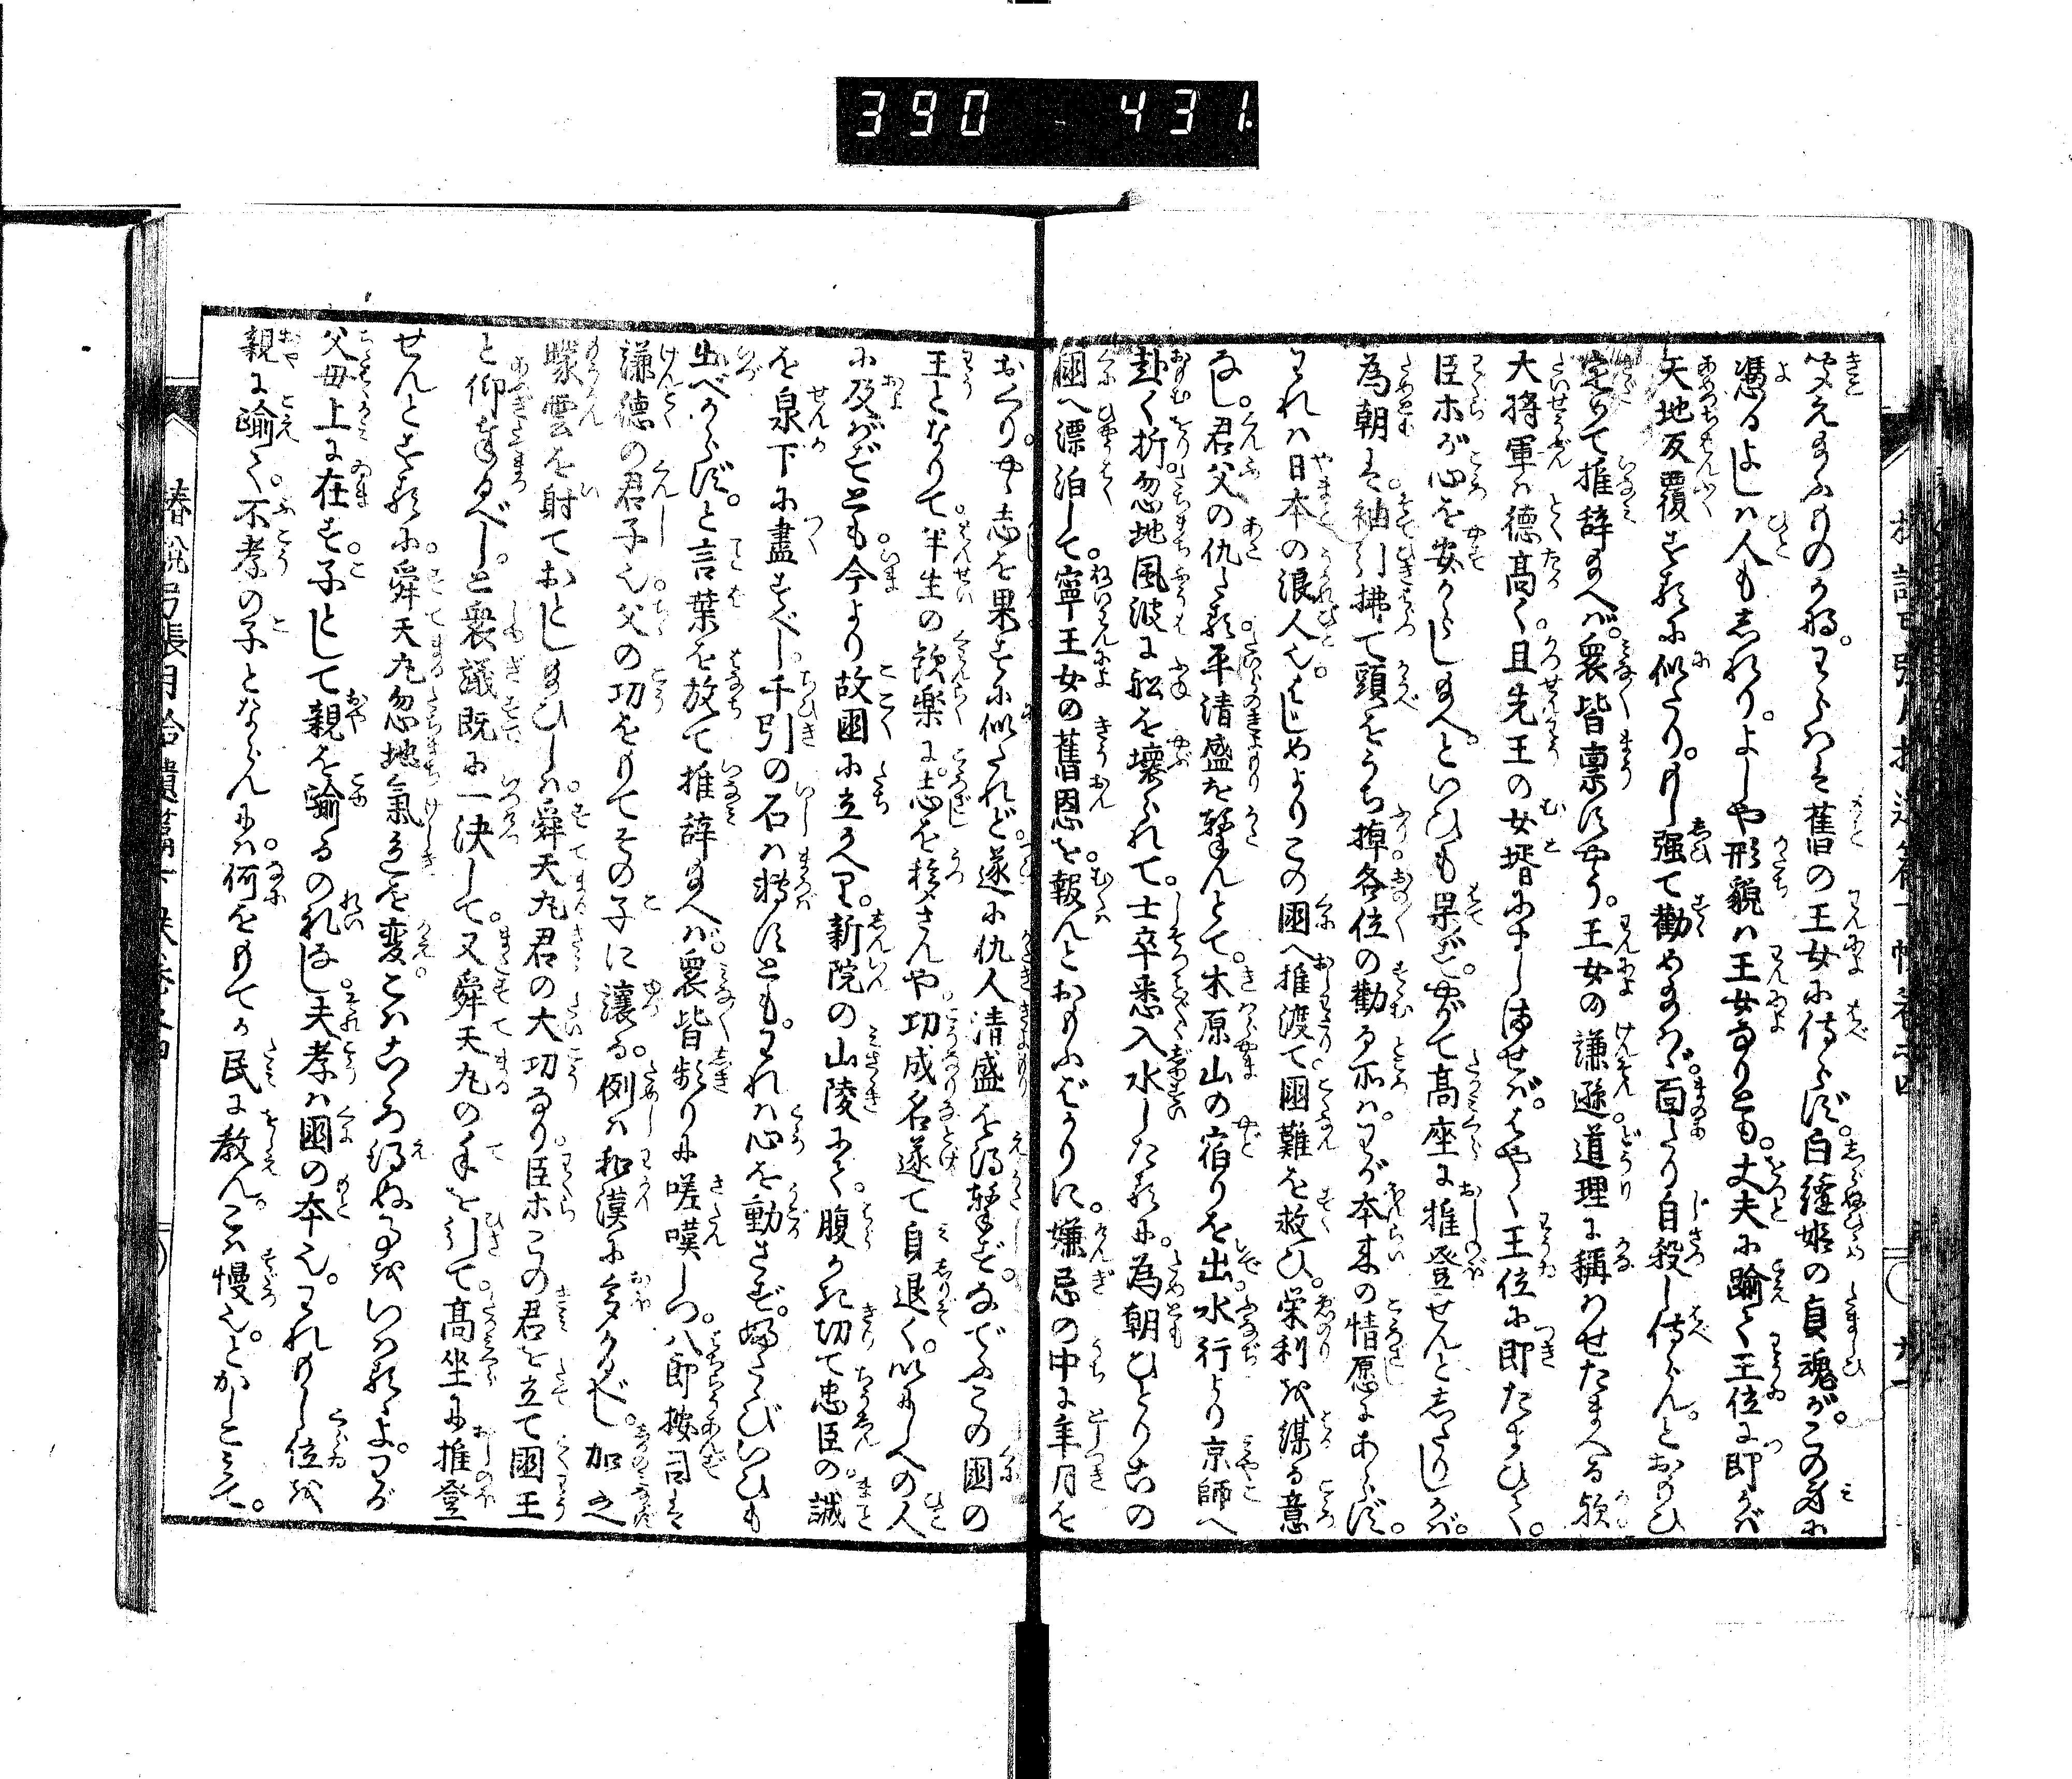 390 431
笑えまふものかな。われは舊の王女に侍らず。白縫姫の貞魂が。この身に
憑るよしは人もしれり。よしや形貌は王女なりとも。丈夫に踰て王位に即かば
天地反覆するに似たり。もし强て勸めまゐらば。面あたり自殺し侍らん。とおもひ
定めて推辞給へば。衆皆禀すやう。王女の謙遜道理に稱はせたまへる歟
大將軍は德高く。且先王の女壻にましませば。はやく王位に即たまひて。
臣ホが心を安からしめ給へ。といひも果ず。やがて高座に推登せんとしたりしかば。
為朝は袖引拂て頭をうち掉各位の勸る所は。わが本来の情愿にあらず。
われは日本の浪人也。はじめよりこの國へ推渡て國難を救ひ。栄利を謀る意
なし。君父の仇たる平清盛を撃んとて。木原山の宿りを出水行より京師へ
赴く折忽地風波に舩を壊られて。士卒悉入水したるに。為朝ひとりこの
國へ漂泊して。寧王女の舊恩を。報んとおもふばかりに。嫌忌の中に年月を
おくり。やゝ志を果すに似たれど。遂に仇人清盛を得撃ず。などてこの國の
王となりて半生の歓楽に。志を移さんや功成名遂て自退く。いにしへの人
に及ばずとも。今より故國に立かへり。新院の山陵にて。腹かき切て忠臣の。誠
を泉下に盡すべし。千引の石は轉すとも。われは心を動さず。ふたゝびいひも
出べからず。と言葉を放て推辞給へば。衆皆頻りに嗟嘆しつ。八郎按司は
謙德の君子也。父の功をもてその子に讓る。例は和漢に多かるべし。加之
曚雲を射ておとし給ひしは。舜天丸君の大功なり。臣ホこの君を立て國王
と仰奉るべし。と衆議既に一決して。又舜天丸の手を引て。高坐に推登
せんとするに。舜天丸忽地氣色を変。こはこゝろ得ぬ事をいはるゝよ。わが
父母上に在す。子として親を踰るの礼なし。夫孝は國の本也。われもし位を
親に踰て。不孝の子とならんには。何をもてか民に教ん。こは慢也。とかしこみて。
椿說弓張月拾遺篇下帙卷之四